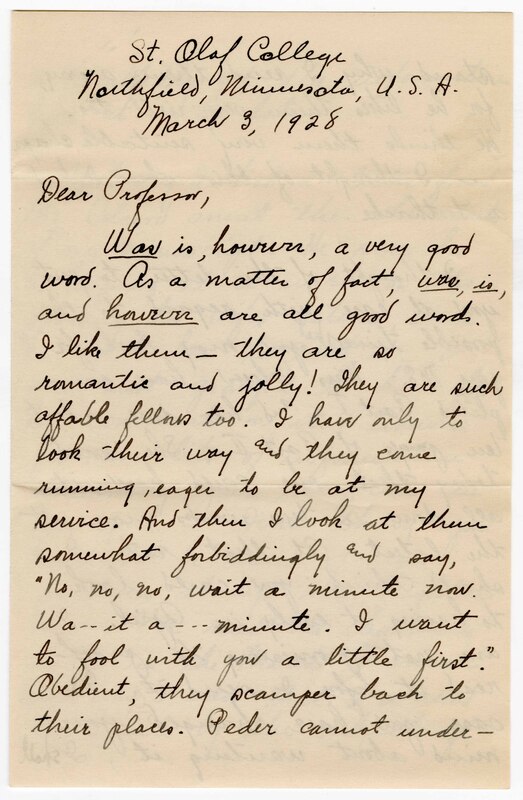 St. Olaf College
Northfield, Minnesota, U. S. A.
March 3, 1928
Dear Professor,
Was is, however, a very good
word. As a matter of fact, was, is,
and however are all good words.
I like them — they are so
romantic and jolly! They are such
affable fellows too. I have only to
look their way and they come
running, eager to be at my
service. And then I look at them
somewhat forbiddingly and say,
"No, no, no, wait a minute now.
Wa--it a --- minute. I want
to fool with you a little first."
Obedient, they scamper back to
their places. Peder cannot under-